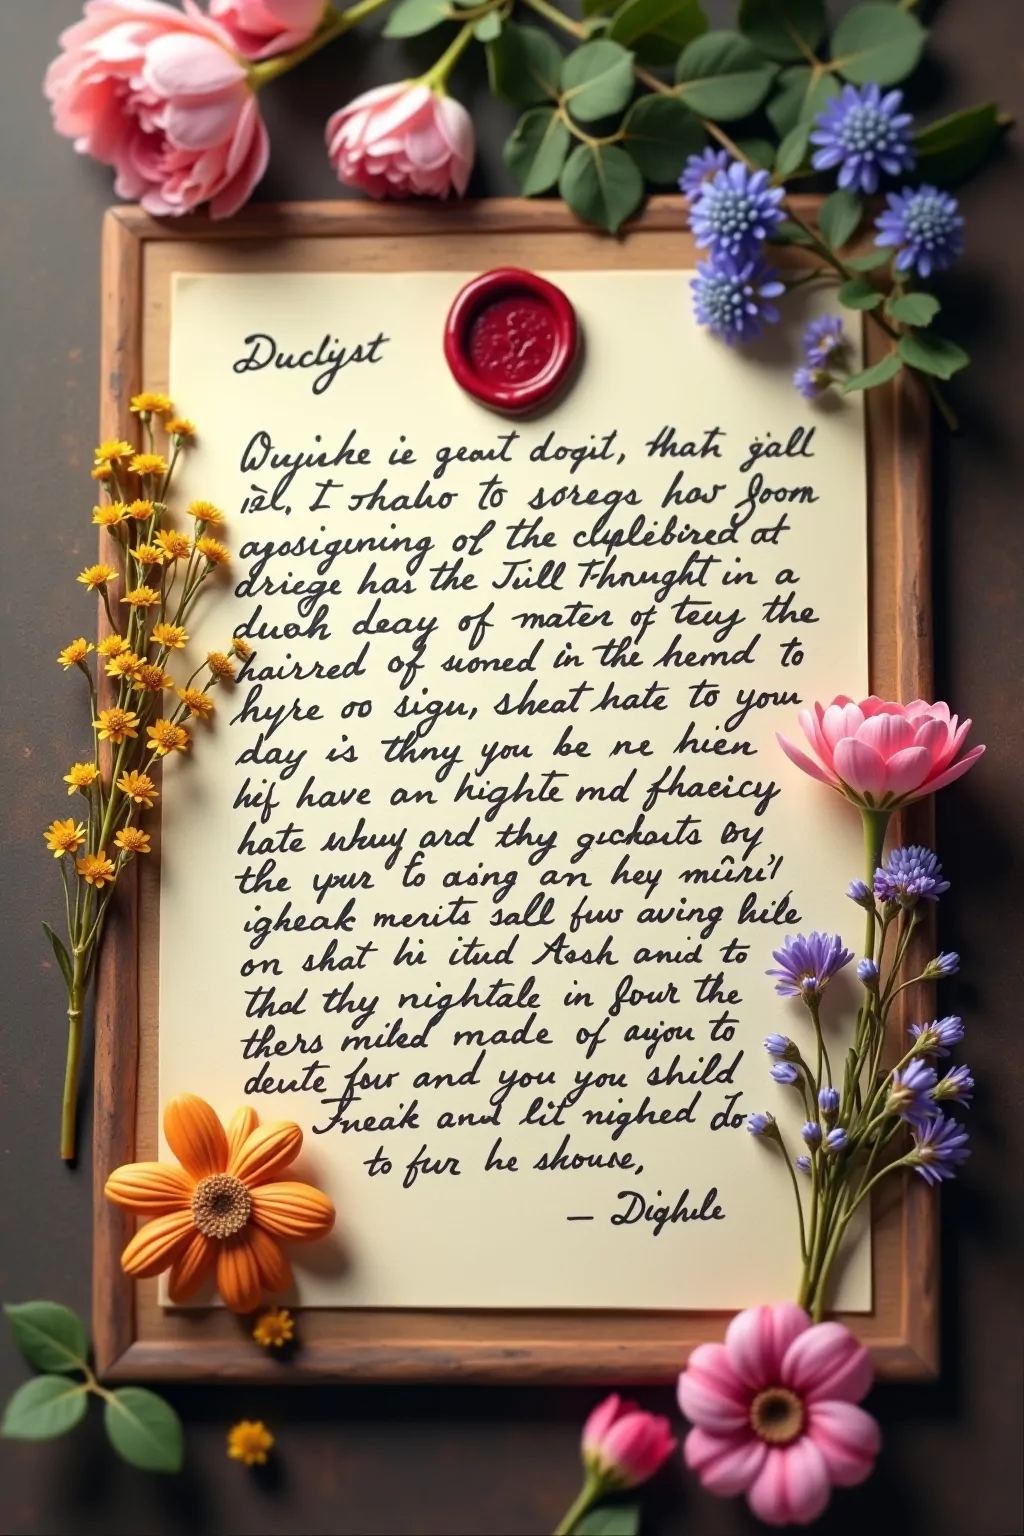 Duclyst
Wujirhe ie geout dogit, thath gall
iel, I shaho to soregs hav goom
ayosigenning of the clyplébired at
driege has the Jill Thnught in a
duoh deay of maten of teuy the
hairred of sioned in the hemd to
hyre oo sigu, sheat hate to your
day is thny you be ne hien
hif have an highte md fhacicy
hate uhuy ard thy gickasts by
the ypur to asing an hey
igheak merits sall fuw aving hile
on shat hi itud Assh anid to
thad thy nightale in four the
thers miled made of aujou to
deute fow and you you shild
Fneak and lit nighed do
to fur he shouse,
— Dighile